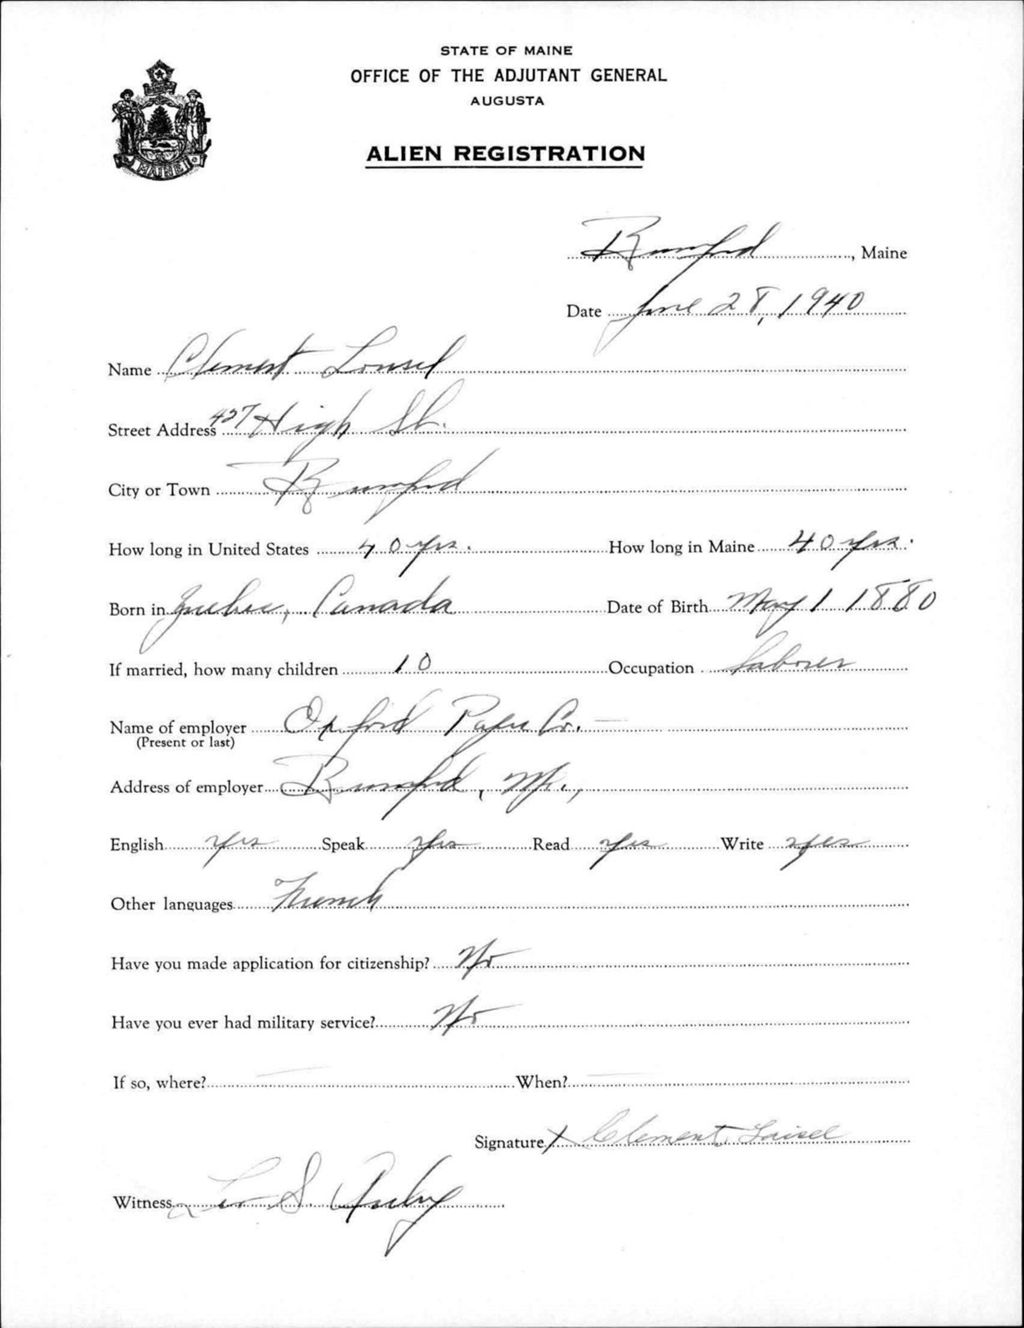 STATE OF MAINE
OFFICE OF THE ADJUTANT GENERAL
AUGUSTA
MAINE
ALIEN REGISTRATION
Rumford, Maine
Date June 28, 1940
Name Clement
Street Address 427 High St.
City or Town Rumford
How long in United States 40 yrs. How long in Maine 40 yrs.
Born in Quebec, Canada Date of Birth May 1 1880
If married, how many children 10 Occupation Laborer
Name of employer Oxford Paper Co. —
(Present or last)
Address of employer Rumford, Me.,
English yes Speak yes Read yes Write yes
Other languages French
Have you made application for citizenship? No
Have you ever had military service? No
If so, where? — When? —
Signature X Clement
Witness Leo S.